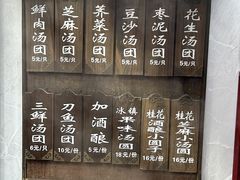 鲜肉汤团
5元/只
芝麻汤团
5元/只
荠菜汤团
5元/只
豆沙汤团
5元/只
枣泥汤团
5元/只
花生汤团
5元/只
三鲜汤团
6元/只
刀鱼汤团
10元/份
加酒酿
5元/份
冰镇果味汤圆
18元/份
桂花酒酿小圆子
16元/份
桂花芝麻小汤圆
16元/份